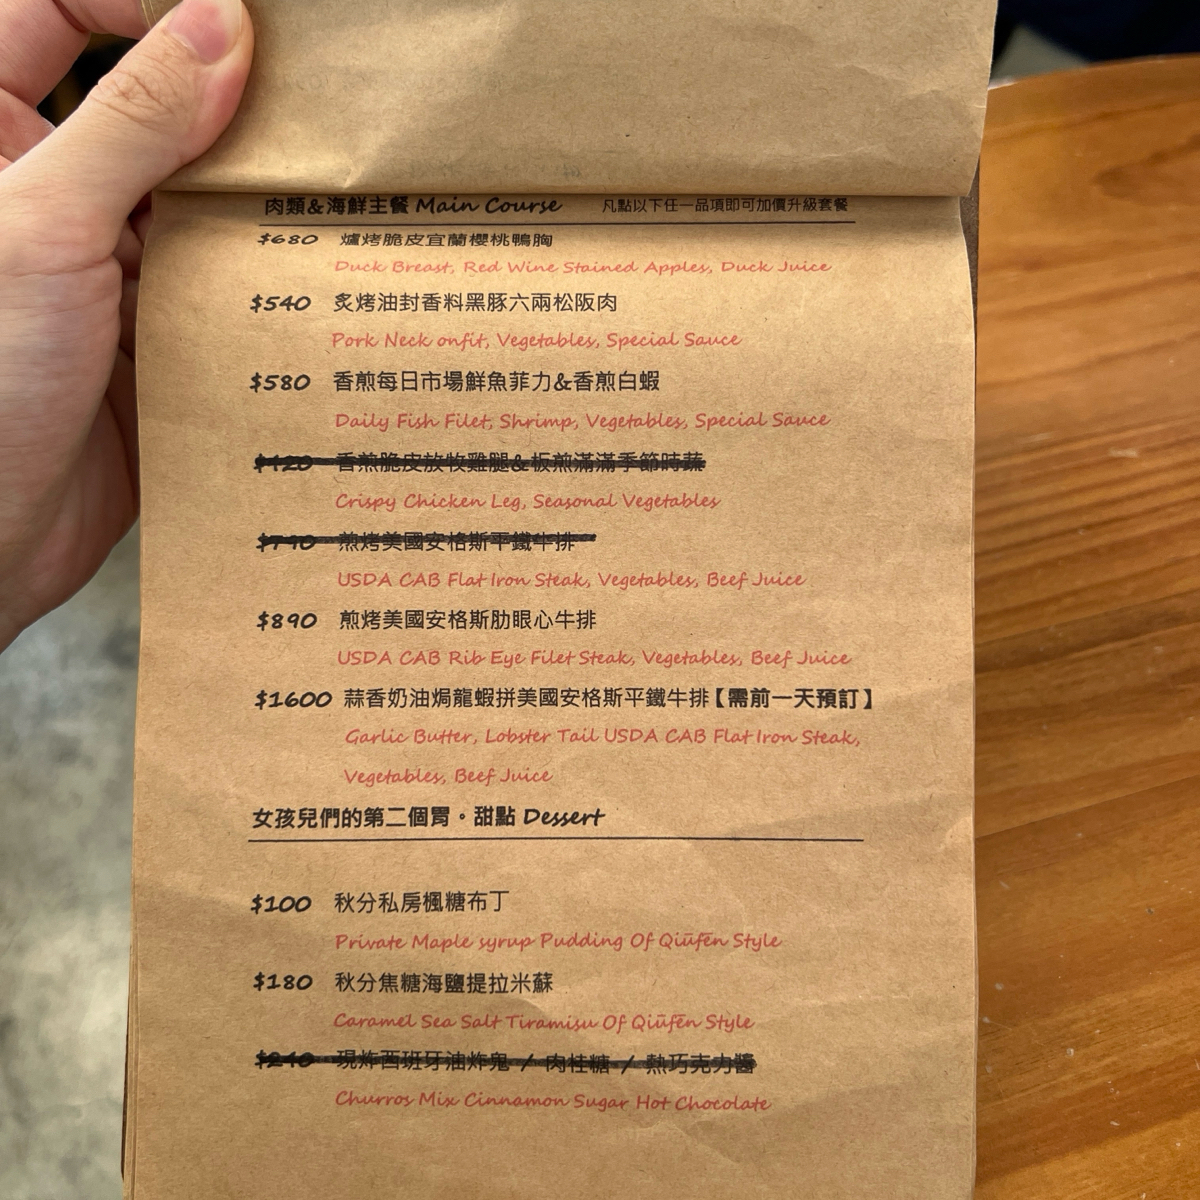 肉類&海鮮主餐 Main Course 凡點以下任一品項即可加價升級套餐
$680 爐烤脆皮宜蘭櫻桃鴨胸
Duck Breast, Red Wine Stained Apples, Duck Juice
$540 炙烤油封香料黑豚六兩松阪肉
Pork Neck onfit, Vegetables, Special Sauce
$580 香煎每日市場鮮魚菲力&香煎白蝦
Daily Fish Filet, Shrimp, Vegetables, Special Sauce
香煎脆皮放牧雞腿&板煎滿滿季節時蔬
Crispy Chicken Leg, Seasonal Vegetables
煎烤美國安格斯平鐵牛排
USDA CAB Flat Iron Steak, Vegetables, Beef Juice
$890 煎烤美國安格斯肋眼心牛排
USDA CAB Rib Eye Filet Steak, Vegetables, Beef Juice
$1600 蒜香奶油焗龍蝦拼美國安格斯平鐵牛排【需前一天預訂】
Garlic Butter, Lobster Tail USDA CAB Flat Iron Steak,
Vegetables, Beef Juice
女孩兒們的第二個胃。甜點 Dessert
$100 秋分私房楓糖布丁
Private Maple syrup Pudding Of Qiūfēn Style
$180 秋分焦糖海鹽提拉米蘇
Caramel Sea Salt Tiramisu Of Qiūfēn Style
$240 現炸西班牙油炸鬼 / 肉桂糖 / 熱巧克力醬
Churros Mix Cinnamon Sugar Hot Chocolate